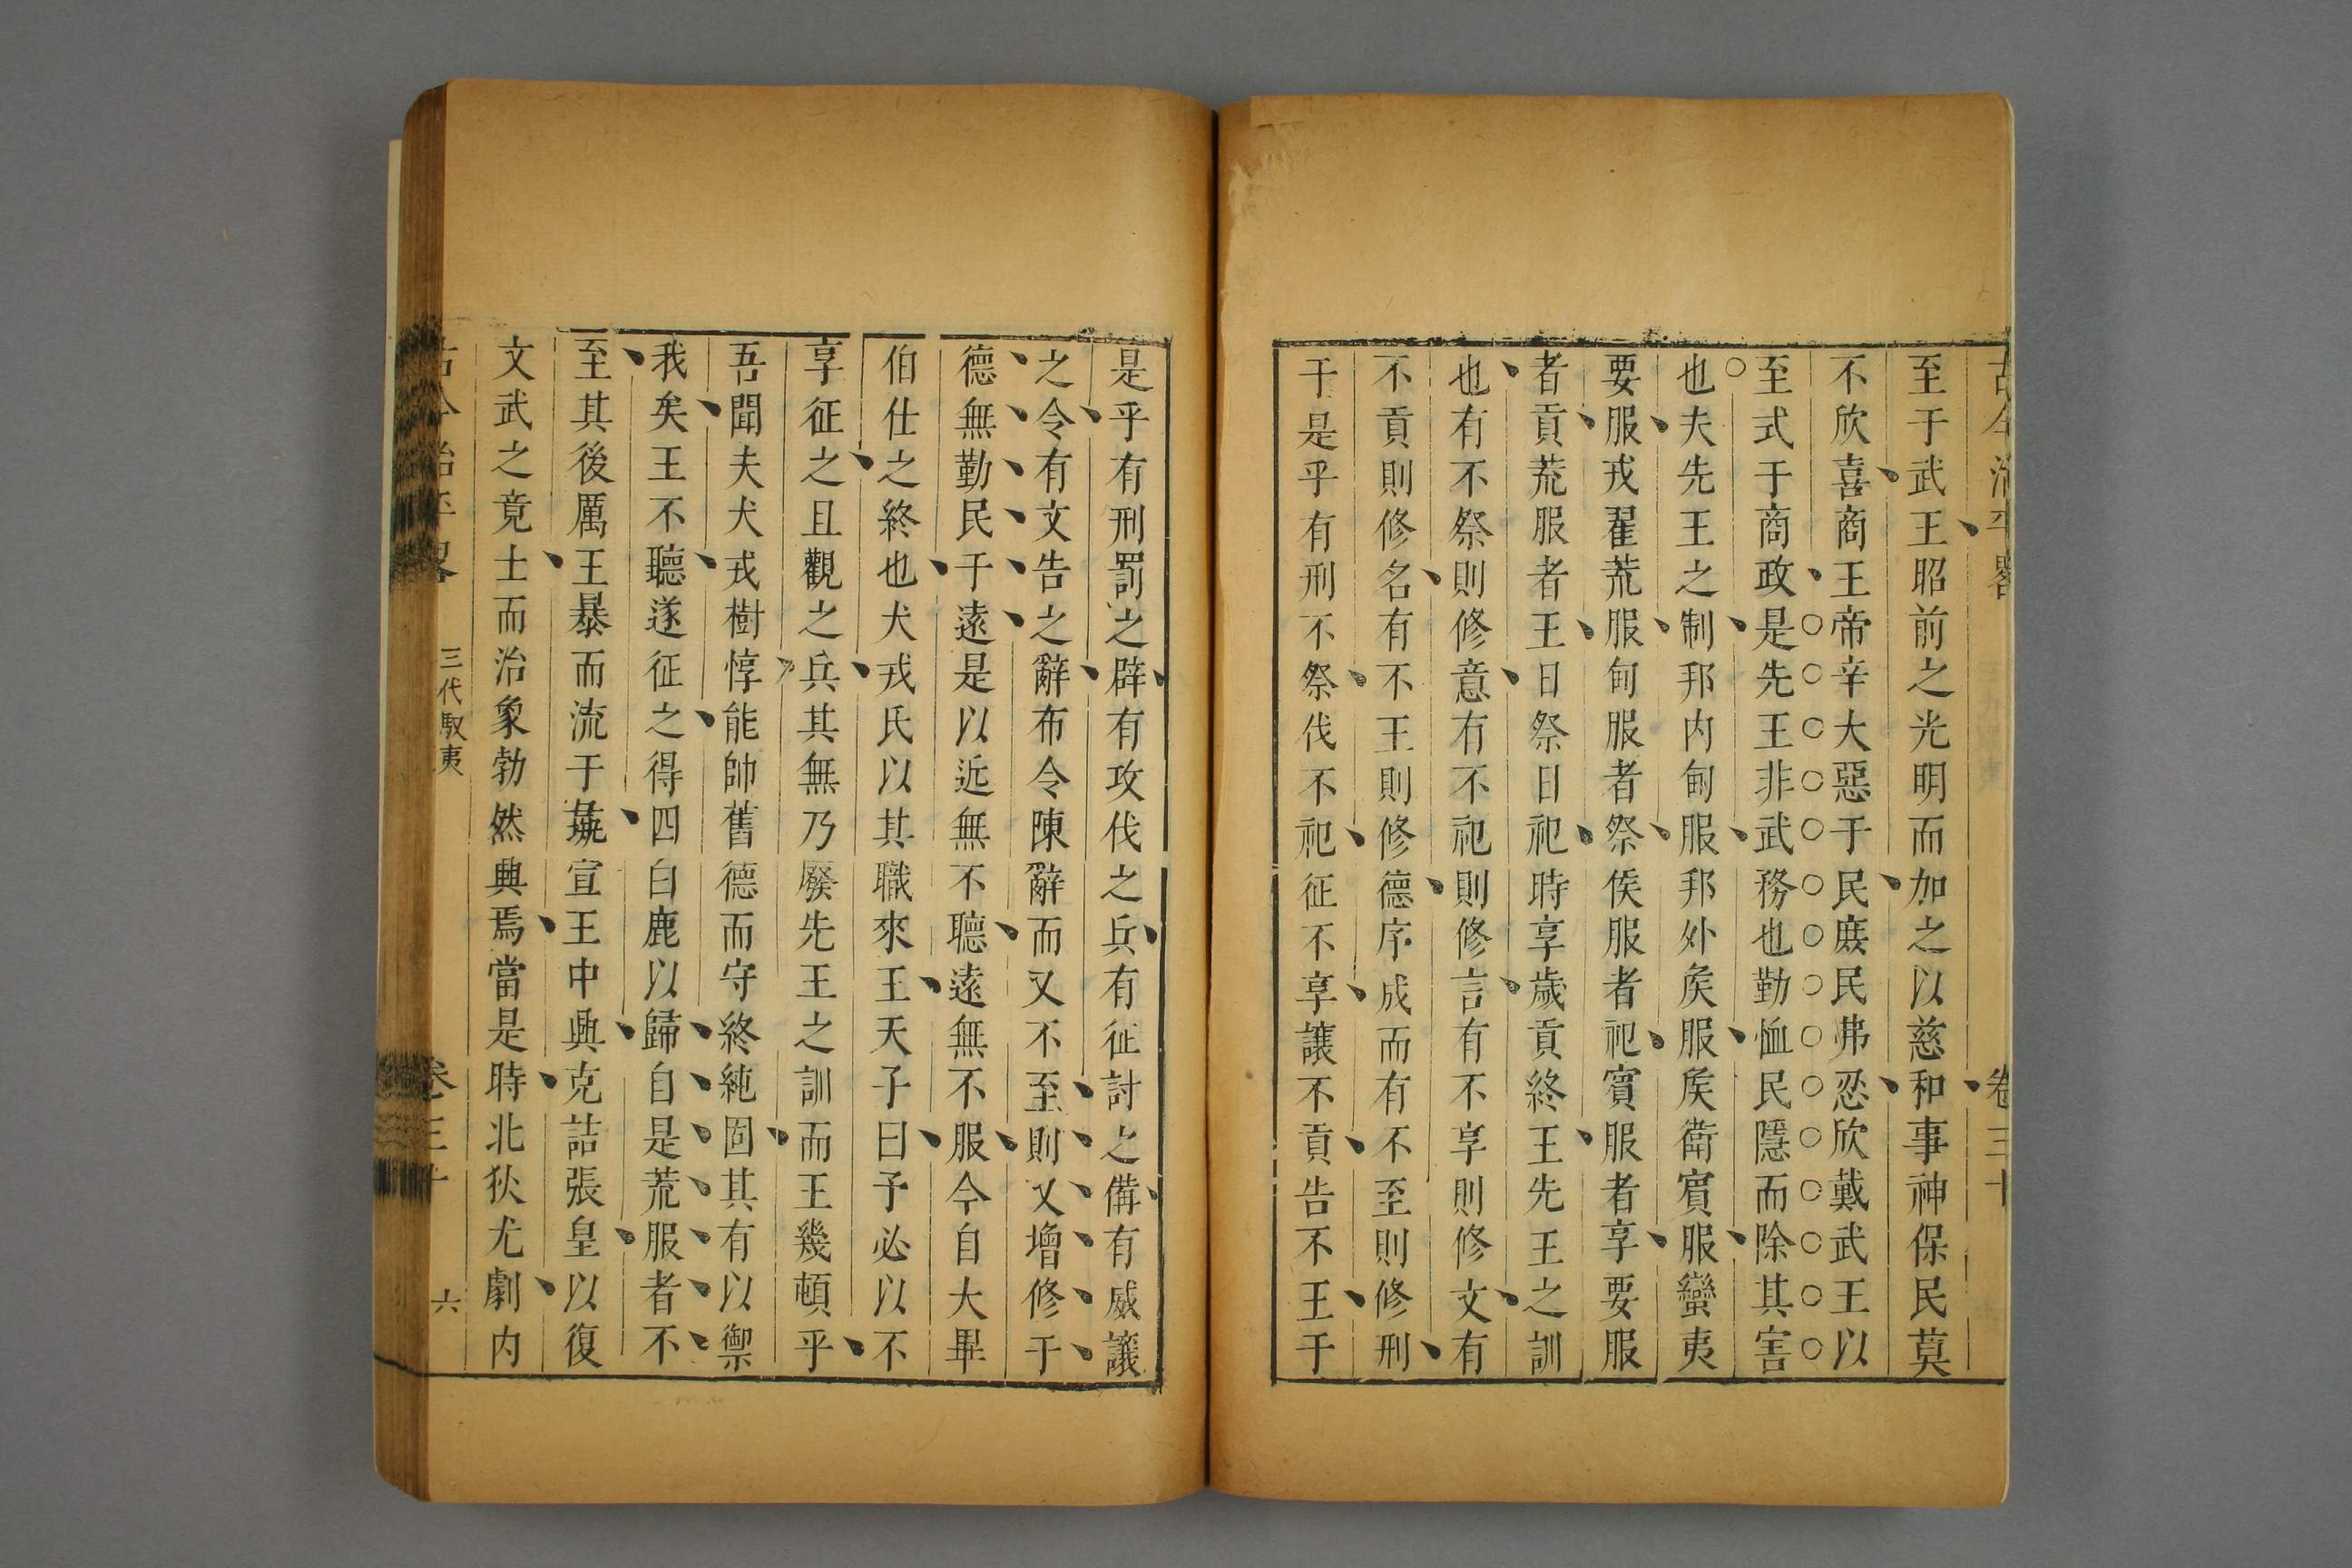 古今治平畧 卷三十
至于武王昭前之光明而加之以慈和事神保民莫
不欣喜商王帝辛大惡于民庶民弗忍欣戴武王以
至式于商政是先王非武務也勤恤民隱而除其害
也夫先王之制邦内甸服邦外矦服矦衛賓服蠻夷
要服戎翟荒服甸服者祭矦服者祀賓服者享要服
者貢荒服者王日祭日祀時享歲貢終王先王之訓
也有不祭則修意有不祀則修言有不享則修文有
不貢則修名有不王則修德序成而有不至則修刑
于是乎有刑不祭伐不祀征不享讓不貢告不王于
是乎有刑罰之辟有攻伐之兵有征討之備有威讓
之令有文告之辭布令陳辭而又不至則又增修于
德無勤民于遠是以近無不聽遠無不服今自大畢
伯仕之終也犬戎氏以其職來王天子曰予必以不
享征之且觀之兵其無乃廢先王之訓而王幾頓乎
吾聞夫犬戎樹惇能帥舊德而守終純固其有以禦
我矣王不聽遂征之得四白鹿以歸自是荒服者不
至其後厲王暴而流于彘宣王中興克詰張皇以復
文武之竟士而治象勃然興焉當是時北狄尤劇内
古今治平畧 三代馭夷 卷三十 六